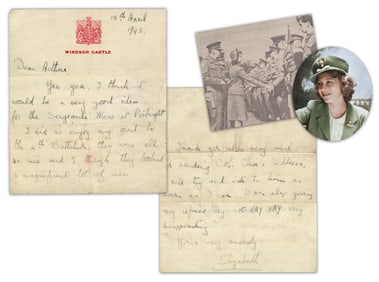 19th April
1943.
WINDSOR CASTLE
Dear Arthur
Yes yes, I think it
would be a very good idea
for the Sergeants' Mess at Pirbright
I did so enjoy my visit to
the 4th Battalion, they were all
so nice and I thought they looked
a magnificent lot of men
Thank you very much
for sending address,
I will try and write to him as
soon as I can. I am also going
very
disappointing
Yours very sincerely
Elizabeth